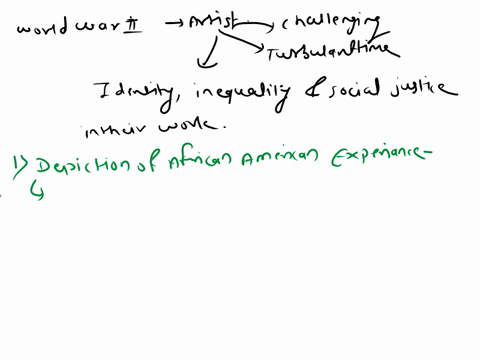 World War II → Artist → challenging
Turbulant time
Identity, inequality & social justice
in their work.
1) Depiction of African American Experiance-